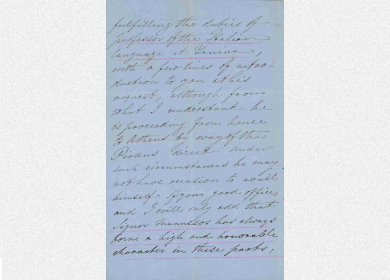 fulfilling the duties of
Professor of the Italian
language at Janina,
with a few lines of intro-
duction to you at his
request, although from
what I understand, he
is proceeding from hence
to Athens by way of the
Piraeus direct. Under
such circumstances he may
not have occasion to avail
himself of your good offices
and I will only add that
Signor has always
borne a high and honorable
character in these parts,